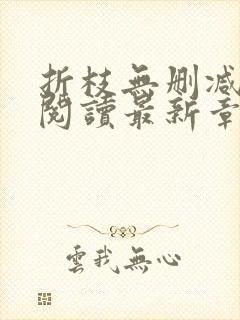 折枝無刪減
閱讀最新章
雲我無心